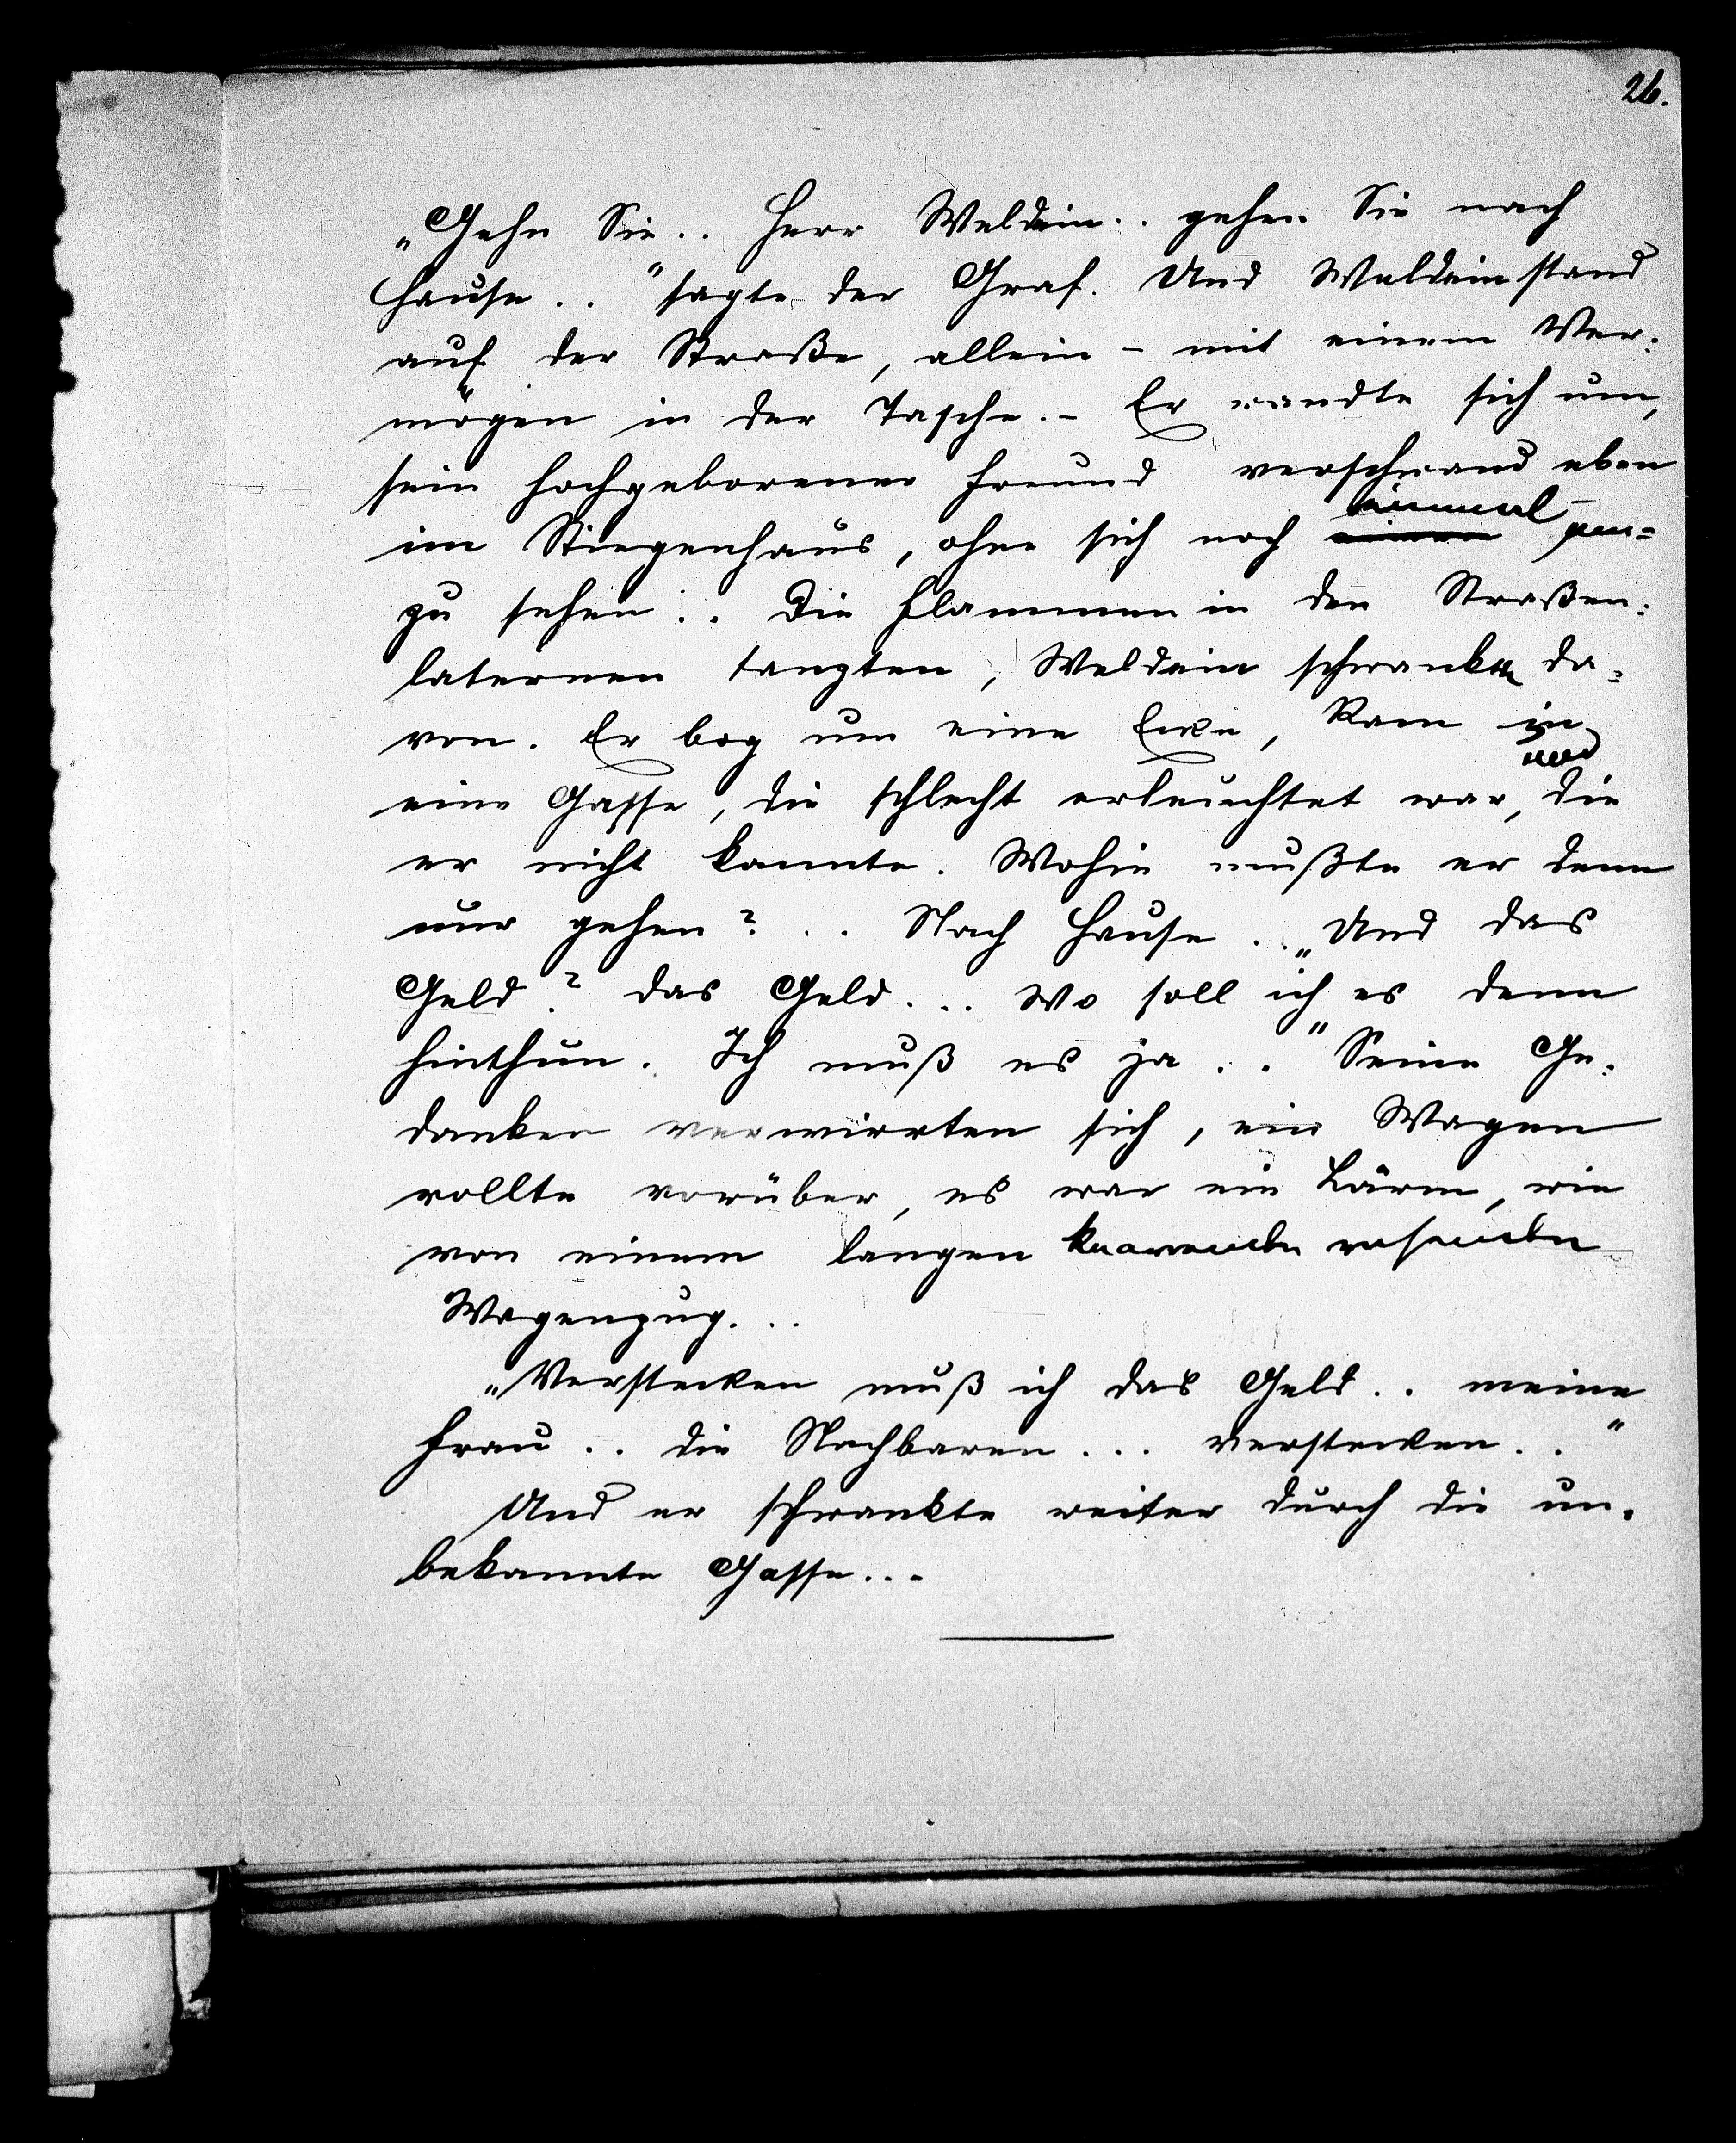 26.
„Gehn Sie .. Herr Weldein .. gehen Sie nach
Hause .. " sagte der Graf. Und Weldein stand
auf der Straße, allein – mit einem Ver-
mögen in der Tasche. – Er wandte sich um,
sein hochgeborener Freund verschwand eben
einmal
im Stiegenhaus, ohne sich noch um=
zu sehen .. Die Flammen in den Straßen-
laternen tanzten, Weldein schwankte da-
von. Er bog um eine Ecke, kam in
und
eine Gasse, die schlecht erleuchtet war, die
er nicht kannte. Wohin mußte er denn
nur gehen? .. Nach Hause .. „Und das
Geld? das Geld ... Wo soll ich es denn
hinthun. Ich muß es ja .. " Seine Ge-
danken verwirrten sich, ein Wagen
rollte vorüber, es war ein Lärm, wie
von einem langen knarrenden rasenden
Wagenzug ...
„Verstecken muß ich das Geld .. meine
Frau .. die Nachbaren ... verstecken .. "
Und er schwankte weiter durch die un-
bekannte Gasse ...